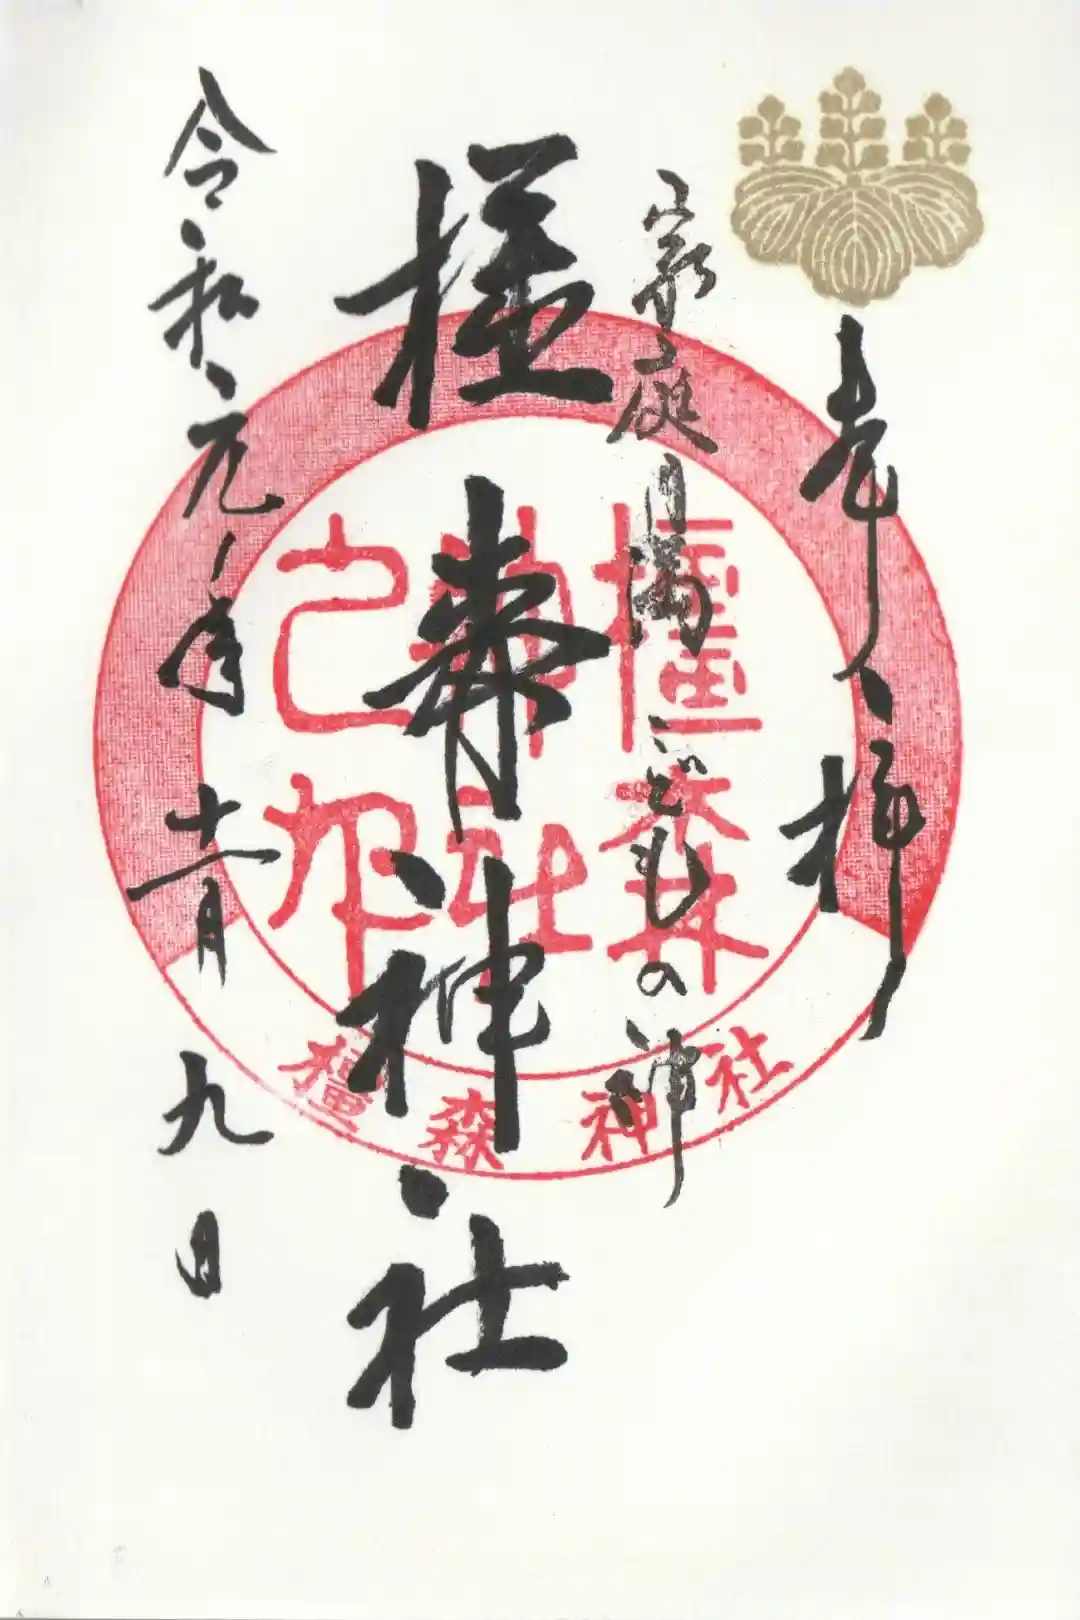 奉拝
家庭円満こどもの神
橿森神社
令和元年十一月九日
橿森
神社
之印
橿森神社